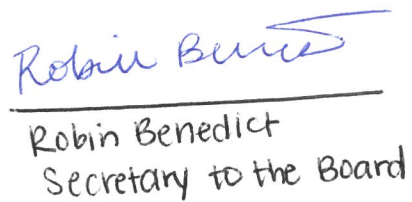 Robin Benedict
Robin Benedict
Secretary to the Board